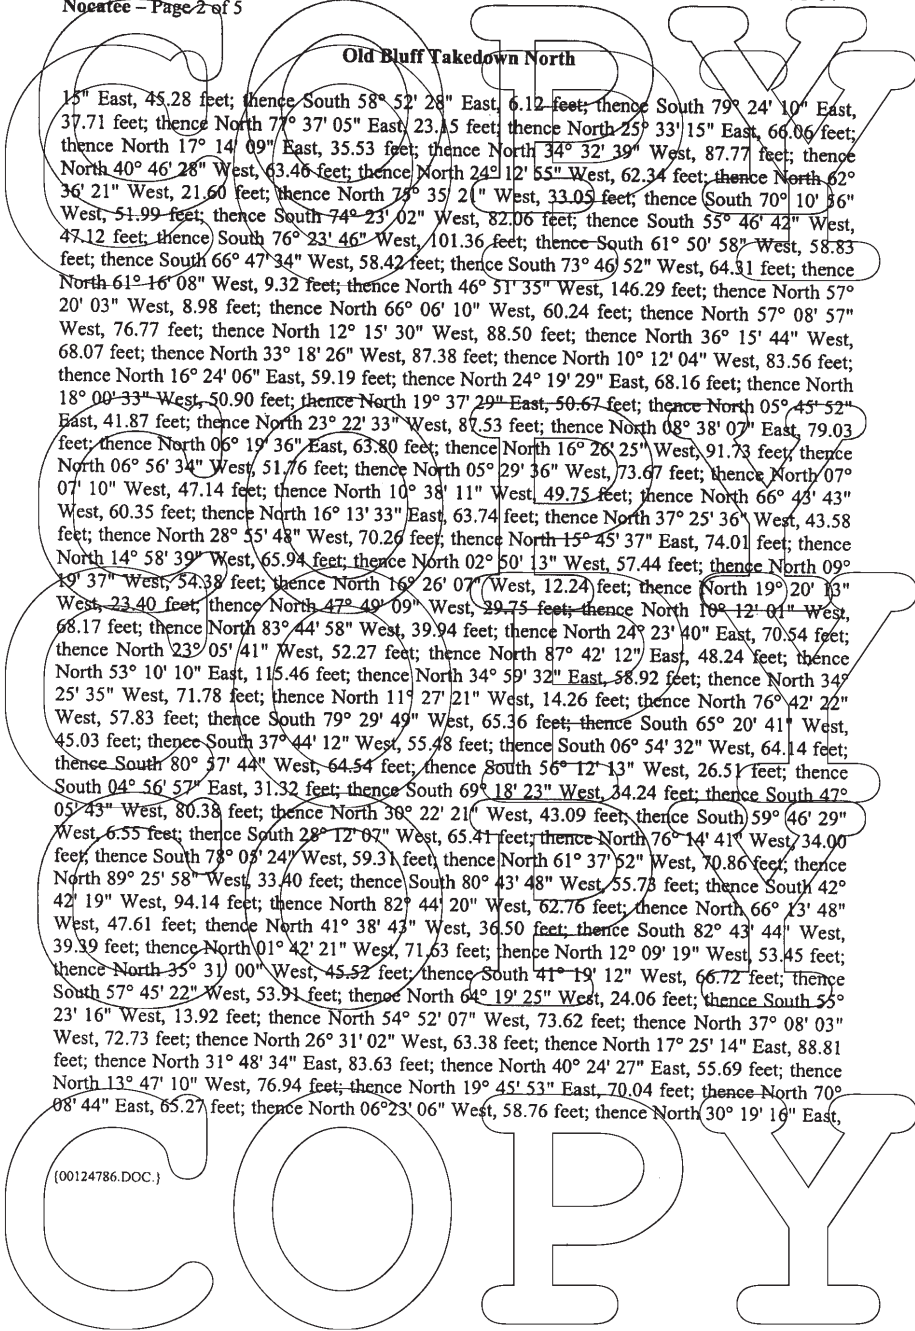 Nocatee – Page 2 of 5
Old Bluff Takedown North
15" East, 45.28 feet; thence South 58° 52' 28" East, 6.12 feet; thence South 79° 24' 10" East,
37.71 feet; thence North 77° 37' 05" East, 23.15 feet; thence North 25° 33' 15" East, 66.06 feet;
thence North 17° 14' 09" East, 35.53 feet; thence North 34° 32' 39" West, 87.77 feet; thence
North 40° 46' 28" West, 63.46 feet; thence North 24° 12' 55" West, 62.34 feet; thence North 62°
36' 21" West, 21.60 feet; thence North 75° 35' 21" West, 33.05 feet; thence South 70° 10' 36"
West, 51.99 feet; thence South 74° 23' 02" West, 82.06 feet; thence South 55° 46' 42" West,
47.12 feet; thence South 76° 23' 46" West, 101.36 feet; thence South 61° 50' 58" West, 58.83
feet; thence South 66° 47' 34" West, 58.42 feet; thence South 73° 46' 52" West, 64.31 feet; thence
North 61° 16' 08" West, 9.32 feet; thence North 46° 51' 35" West, 146.29 feet; thence North 57°
20' 03" West, 8.98 feet; thence North 66° 06' 10" West, 60.24 feet; thence North 57° 08' 57"
West, 76.77 feet; thence North 12° 15' 30" West, 88.50 feet; thence North 36° 15' 44" West,
68.07 feet; thence North 33° 18' 26" West, 87.38 feet; thence North 10° 12' 04" West, 83.56 feet;
thence North 16° 24' 06" East, 59.19 feet; thence North 24° 19' 29" East, 68.16 feet; thence North
18° 00' 33" West, 50.90 feet; thence North 19° 37' 29" East, 50.67 feet; thence North 05° 45' 52"
East, 41.87 feet; thence North 23° 22' 33" West, 87.53 feet; thence North 08° 38' 07" East, 79.03
feet; thence North 06° 19' 36" East, 63.80 feet; thence North 16° 26' 25" West, 91.73 feet; thence
North 06° 56' 34" West, 51.76 feet; thence North 05° 29' 36" West, 73.67 feet; thence North 07°
07' 10" West, 47.14 feet; thence North 10° 38' 11" West, 49.75 feet; thence North 66° 43' 43"
West, 60.35 feet; thence North 16° 13' 33" East, 63.74 feet; thence North 37° 25' 36" West, 43.58
feet; thence North 28° 55' 48" West, 70.26 feet; thence North 15° 45' 37" East, 74.01 feet; thence
North 14° 58' 39" West, 65.94 feet; thence North 02° 50' 13" West, 57.44 feet; thence North 09°
19' 37" West, 54.38 feet; thence North 16° 26' 07" West, 12.24 feet; thence North 19° 20' 13"
West, 23.40 feet; thence North 47° 49' 09" West, 29.75 feet; thence North 10° 12' 01" West,
68.17 feet; thence North 83° 44' 58" West, 39.94 feet; thence North 24° 23' 40" East, 70.54 feet;
thence North 23° 05' 41" West, 52.27 feet; thence North 87° 42' 12" East, 48.24 feet; thence
North 53° 10' 10" East, 115.46 feet; thence North 34° 59' 32" East, 58.92 feet; thence North 34°
25' 35" West, 71.78 feet; thence North 11° 27' 21" West, 14.26 feet; thence North 76° 42' 22"
West, 57.83 feet; thence South 79° 29' 49" West, 65.36 feet; thence South 65° 20' 41" West,
45.03 feet; thence South 37° 44' 12" West, 55.48 feet; thence South 06° 54' 32" West, 64.14 feet;
thence South 80° 57' 44" West, 64.54 feet; thence South 56° 12' 13" West, 26.51 feet; thence
South 04° 56' 57" East, 31.32 feet; thence South 69° 18' 23" West, 34.24 feet; thence South 47°
05' 43" West, 80.38 feet; thence North 30° 22' 21" West, 43.09 feet; thence South 59° 46' 29"
West, 6.55 feet; thence South 28° 12' 07" West, 65.41 feet; thence North 76° 14' 41" West, 34.00
feet; thence South 78° 03' 24" West, 59.31 feet; thence North 61° 37' 52" West, 70.86 feet; thence
North 89° 25' 58" West, 33.40 feet; thence South 80° 43' 48" West, 55.73 feet; thence South 42°
42' 19" West, 94.14 feet; thence North 82° 44' 20" West, 62.76 feet; thence North 66° 13' 48"
West, 47.61 feet; thence North 41° 38' 43" West, 36.50 feet; thence South 82° 43' 44" West,
39.39 feet; thence North 01° 42' 21" West, 71.63 feet; thence North 12° 09' 19" West, 53.45 feet;
thence North 35° 31' 00" West, 45.52 feet; thence South 41° 19' 12" West, 66.72 feet; thence
South 57° 45' 22" West, 53.91 feet; thence North 64° 19' 25" West, 24.06 feet; thence South 55°
23' 16" West, 13.92 feet; thence North 54° 52' 07" West, 73.62 feet; thence North 37° 08' 03"
West, 72.73 feet; thence North 26° 31' 02" West, 63.38 feet; thence North 17° 25' 14" East, 88.81
feet; thence North 31° 48' 34" East, 83.63 feet; thence North 40° 24' 27" East, 55.69 feet; thence
North 13° 47' 10" West, 76.94 feet; thence North 19° 45' 53" East, 70.04 feet; thence North 70°
08' 44" East, 65.27 feet; thence North 06°23' 06" West, 58.76 feet; thence North 30° 19' 16" East,
{00124786.DOC.}
COPY
COPY
COPY
COPY
COPY